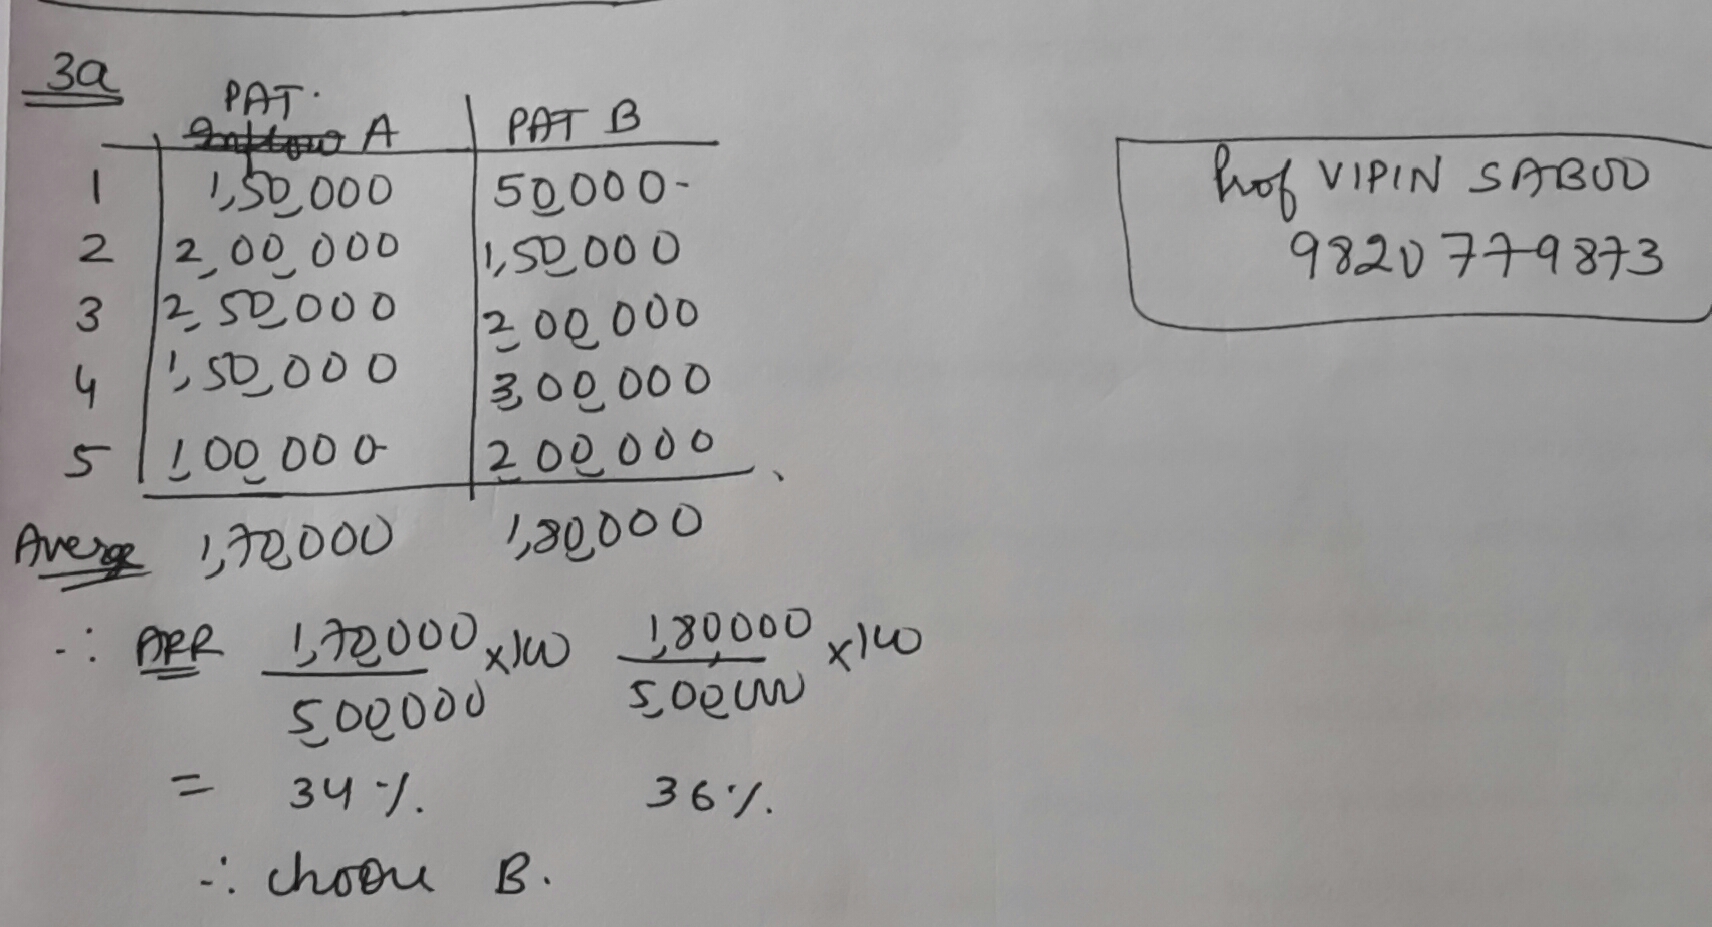 3a
PAT.
Inflow A | PAT B
1 | 1,50,000 | 50,000-
2 | 2,00,000 | 1,50,000
3 | 2,50,000 | 2,00,000
4 | 1,50,000 | 3,00,000
5 | 1,00,000 | 2,00,000
Average 1,70,000 1,80,000
∴ ARR 1,70,000 x100 1,80,000 x100
5,00,000 5,00,000
= 34 %. 36 %.
∴ choose B.
Prof VIPIN SABOO
9820779873